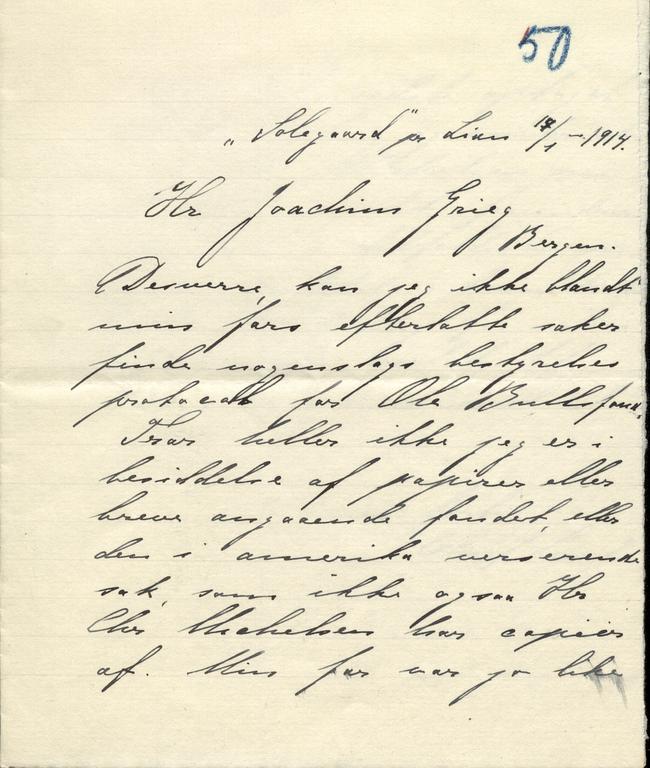 50
"Solegaard" pr Lian 17/1 - 1914.
Hr Joachim Grieg
Bergen.
Desverre, kan jeg ikke blandt
min fars efterlatte saker
finde nogenslags bestyrelses
protocol for Ole Bullsfond.
Tror heller ikke jeg er i
besiddelse af papirer eller
breve angaaende fondet, eller
den i amerika verserende
sak, som ikke ogsaa Hr
Chr Michelsen har copier
af. Min far var jo like